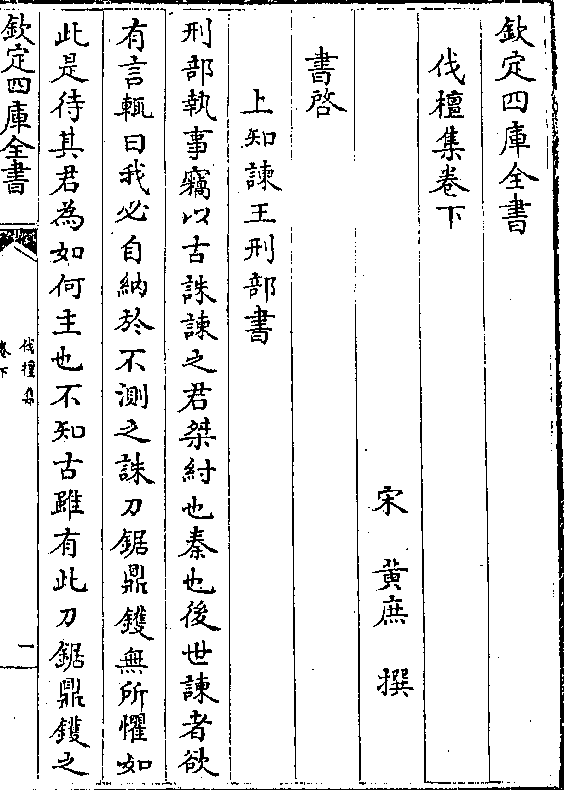 欽定四庫全書
伐檀集卷下
宋 黃庶 撰
書啓
上知諫王刑部書
刑部執事竊以古誅諫之君桀紂也秦也後世諫者欲
有言輒曰我必自納於不測之誅刀鋸鼎鑊無所懼如
此是待其君為如何主也不知古雖有此刀鋸鼎鑊之
欽定四庫全書
伐檀集
卷下
一